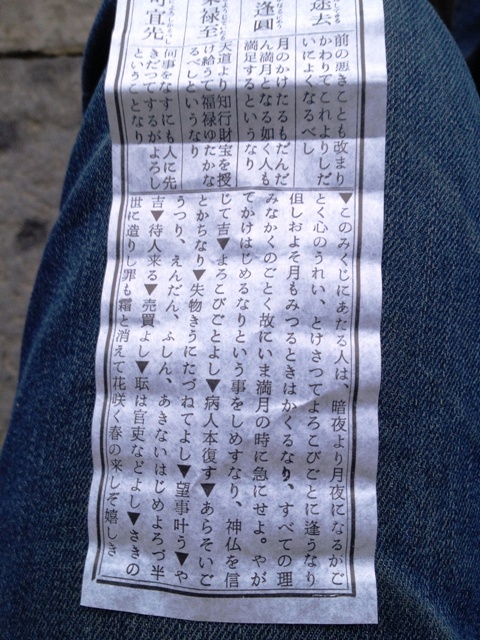 途去
前の悪きことも改まり
かわりてこれよりしだ
いによくなるべし
逢圓
月のかけたるもだんだ
ん満月となる如く人も
満足するというなり
禄至
天道より知行財宝を授
け給うて福禄ゆたかな
るべしというなり
宜先
何事をなすにも人に先
きだつてするがよろし
ということなり
▼このみくじにあたる人は、暗夜より月夜になるかご
とく心のうれい、とけさつてよろこびごとに逢うなり
但しおよそ月もみつるときはかくるなり、すべての理
みなかくのごとく故にいま満月の時に急にせよ。やが
てかけはじめるなりという事をしめすなり、神仏を信
じて吉▼よろこびごとよし▼病人本復す▼あらそいご
とかちなり▼失物きうにたづねてよし▼望事叶う▼や
うつり、えんだん、ふしん、あきないはじめよろづ半
吉▼待人来る▼売買よし▼耺は官吏などよし▼さきの
世に造りし罪も霜と消えて花咲く春の来しぞ嬉しき